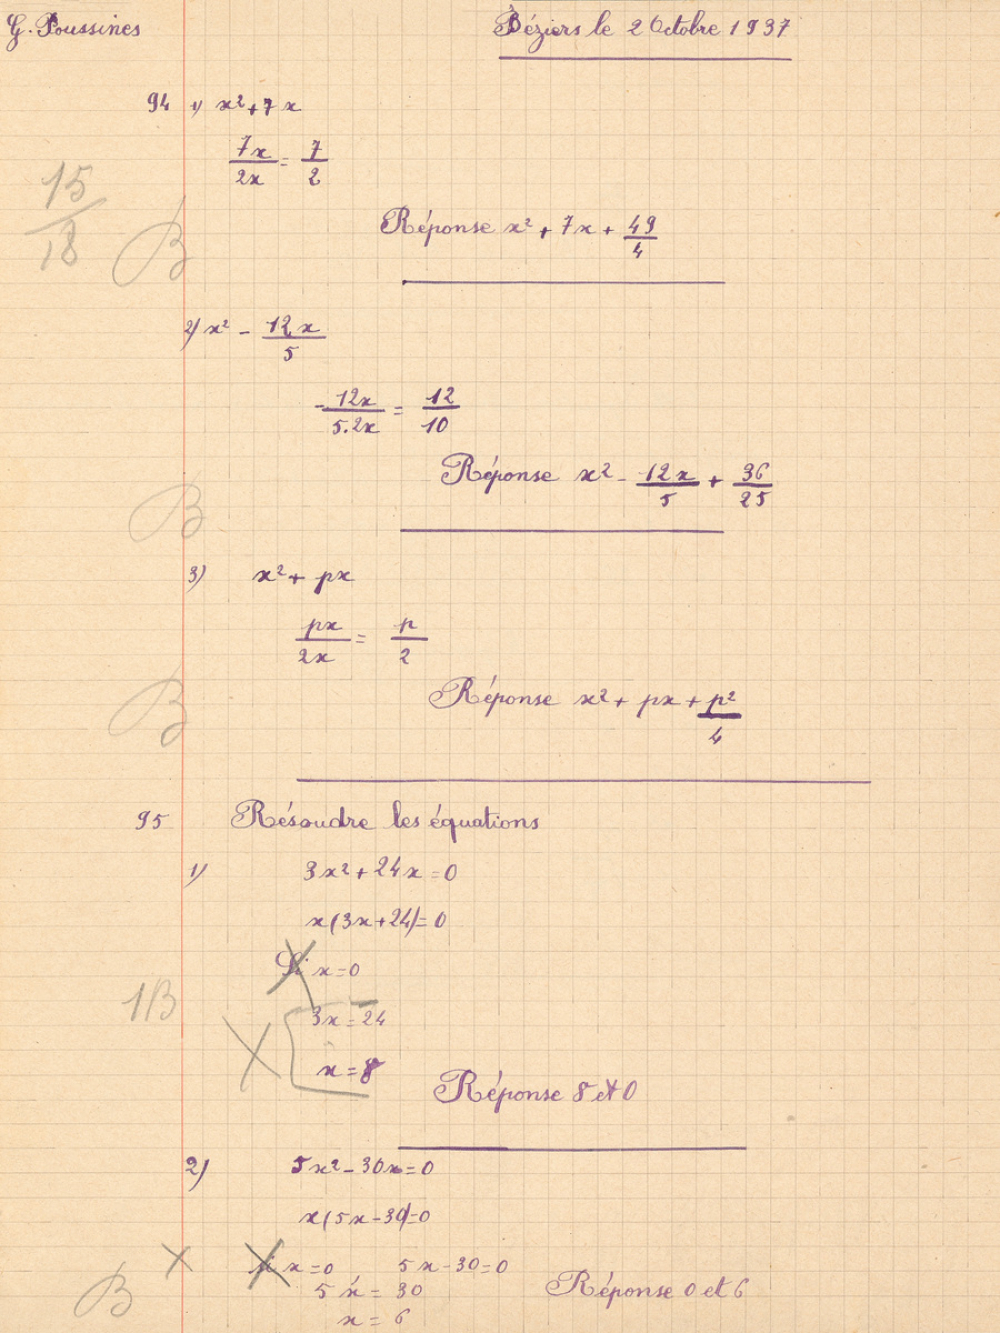 G. Poussines
Béziers le 2 Octobre 1937
94 1) x² + 7x
7x/2x = 7/2
15/18
B
Réponse x² + 7x + 49/4
2) x² - 12x/5
-12x/5.2x = 12/10
Réponse x² - 12x/5 + 36/25
B
3) x² + px
px/2x = p/2
Réponse x² + px + p²/4
B
95 Résoudre les équations
1) 3x² + 24x = 0
x(3x+24) = 0
Si x = 0
1B
3x = - 24
x = 8
Réponse 8 et 0
2) 5x² - 30x = 0
x(5x - 30) = 0
Si x = 0 5x - 30 = 0
5x = 30
Réponse 0 et 6
B
x = 6